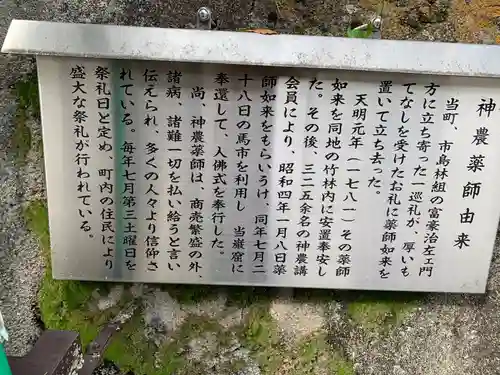 神農薬師由来
当町、市島林組の富豪治左ェ門
方に立ち寄った一巡礼が、厚いも
てなしを受けたお礼に薬師如来を
置いて立ち去った。
天明元年(一七八一)その薬師
如来を同地の竹林内に安置奉安し
た。その後、三二五余名の神農講
会員により、昭和四年一月八日薬
師如来をもらいうけ、同年七月二
十八日の馬市を利用し、当嶽窟に
奉還して、入佛式を奉行した。
尚、神農薬師は、商売繁盛の外、
諸病、諸難一切を払い給うと言い
伝えられ、多くの人々より信仰さ
れている。毎年七月第三土曜日を
祭礼日と定め、町内の住民により
盛大な祭礼が行われている。